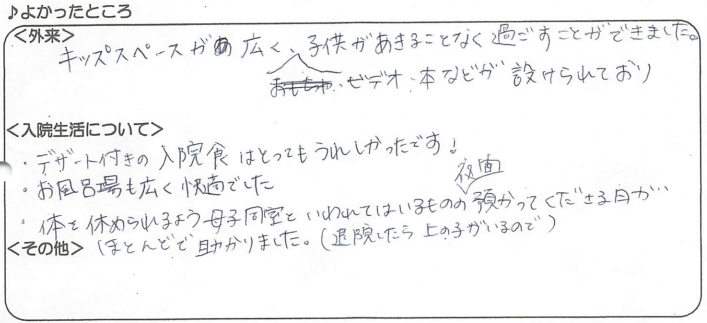 ♪よかったところ
<外来>
キッズスペースが広く、子供があきることなく過ごすことができました。
おもちゃ・ビデオ・本などが設けられており
<入院生活について>
・デザート付きの入院食はとってもうれしかったです!
・お風呂場も広く快適でした
夜間
・体を休められるよう母子同室といわれてはいるものの預かってくださる日が…
<その他> ほとんどで助かりました。(退院したら上の子がいるので)